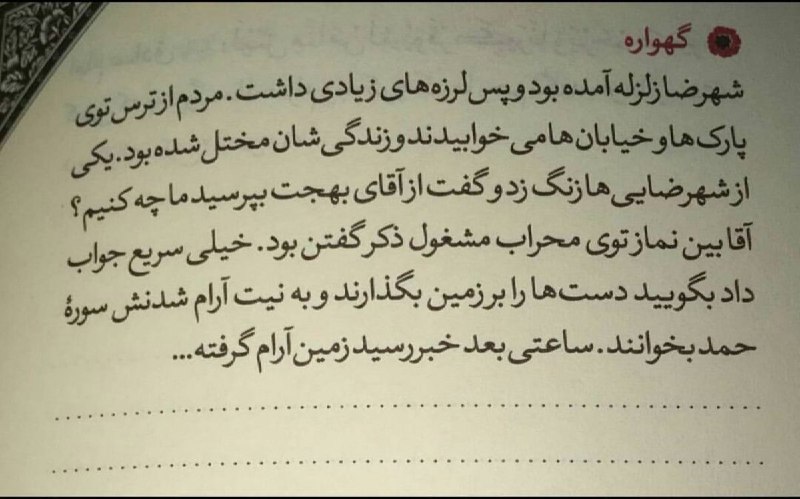 گهواره
شهرضا زلزله آمده بود و پس لرزه‌های زیادی داشت. مردم از ترس توی
پارک‌ها و خیابان‌ها می خوابیدند و زندگی شان مختل شده بود. یکی
از شهرضایی‌ها زنگ زد و گفت از آقای بهجت بپرسید ما چه کنیم؟
آقا بین نماز توی محراب مشغول ذکر گفتن بود. خیلی سریع جواب
داد بگویید دست‌ها را بر زمین بگذارند و به نیت آرام شدنش سورهٔ
حمد بخوانند. ساعتی بعد خبر رسید زمین آرام گرفته...